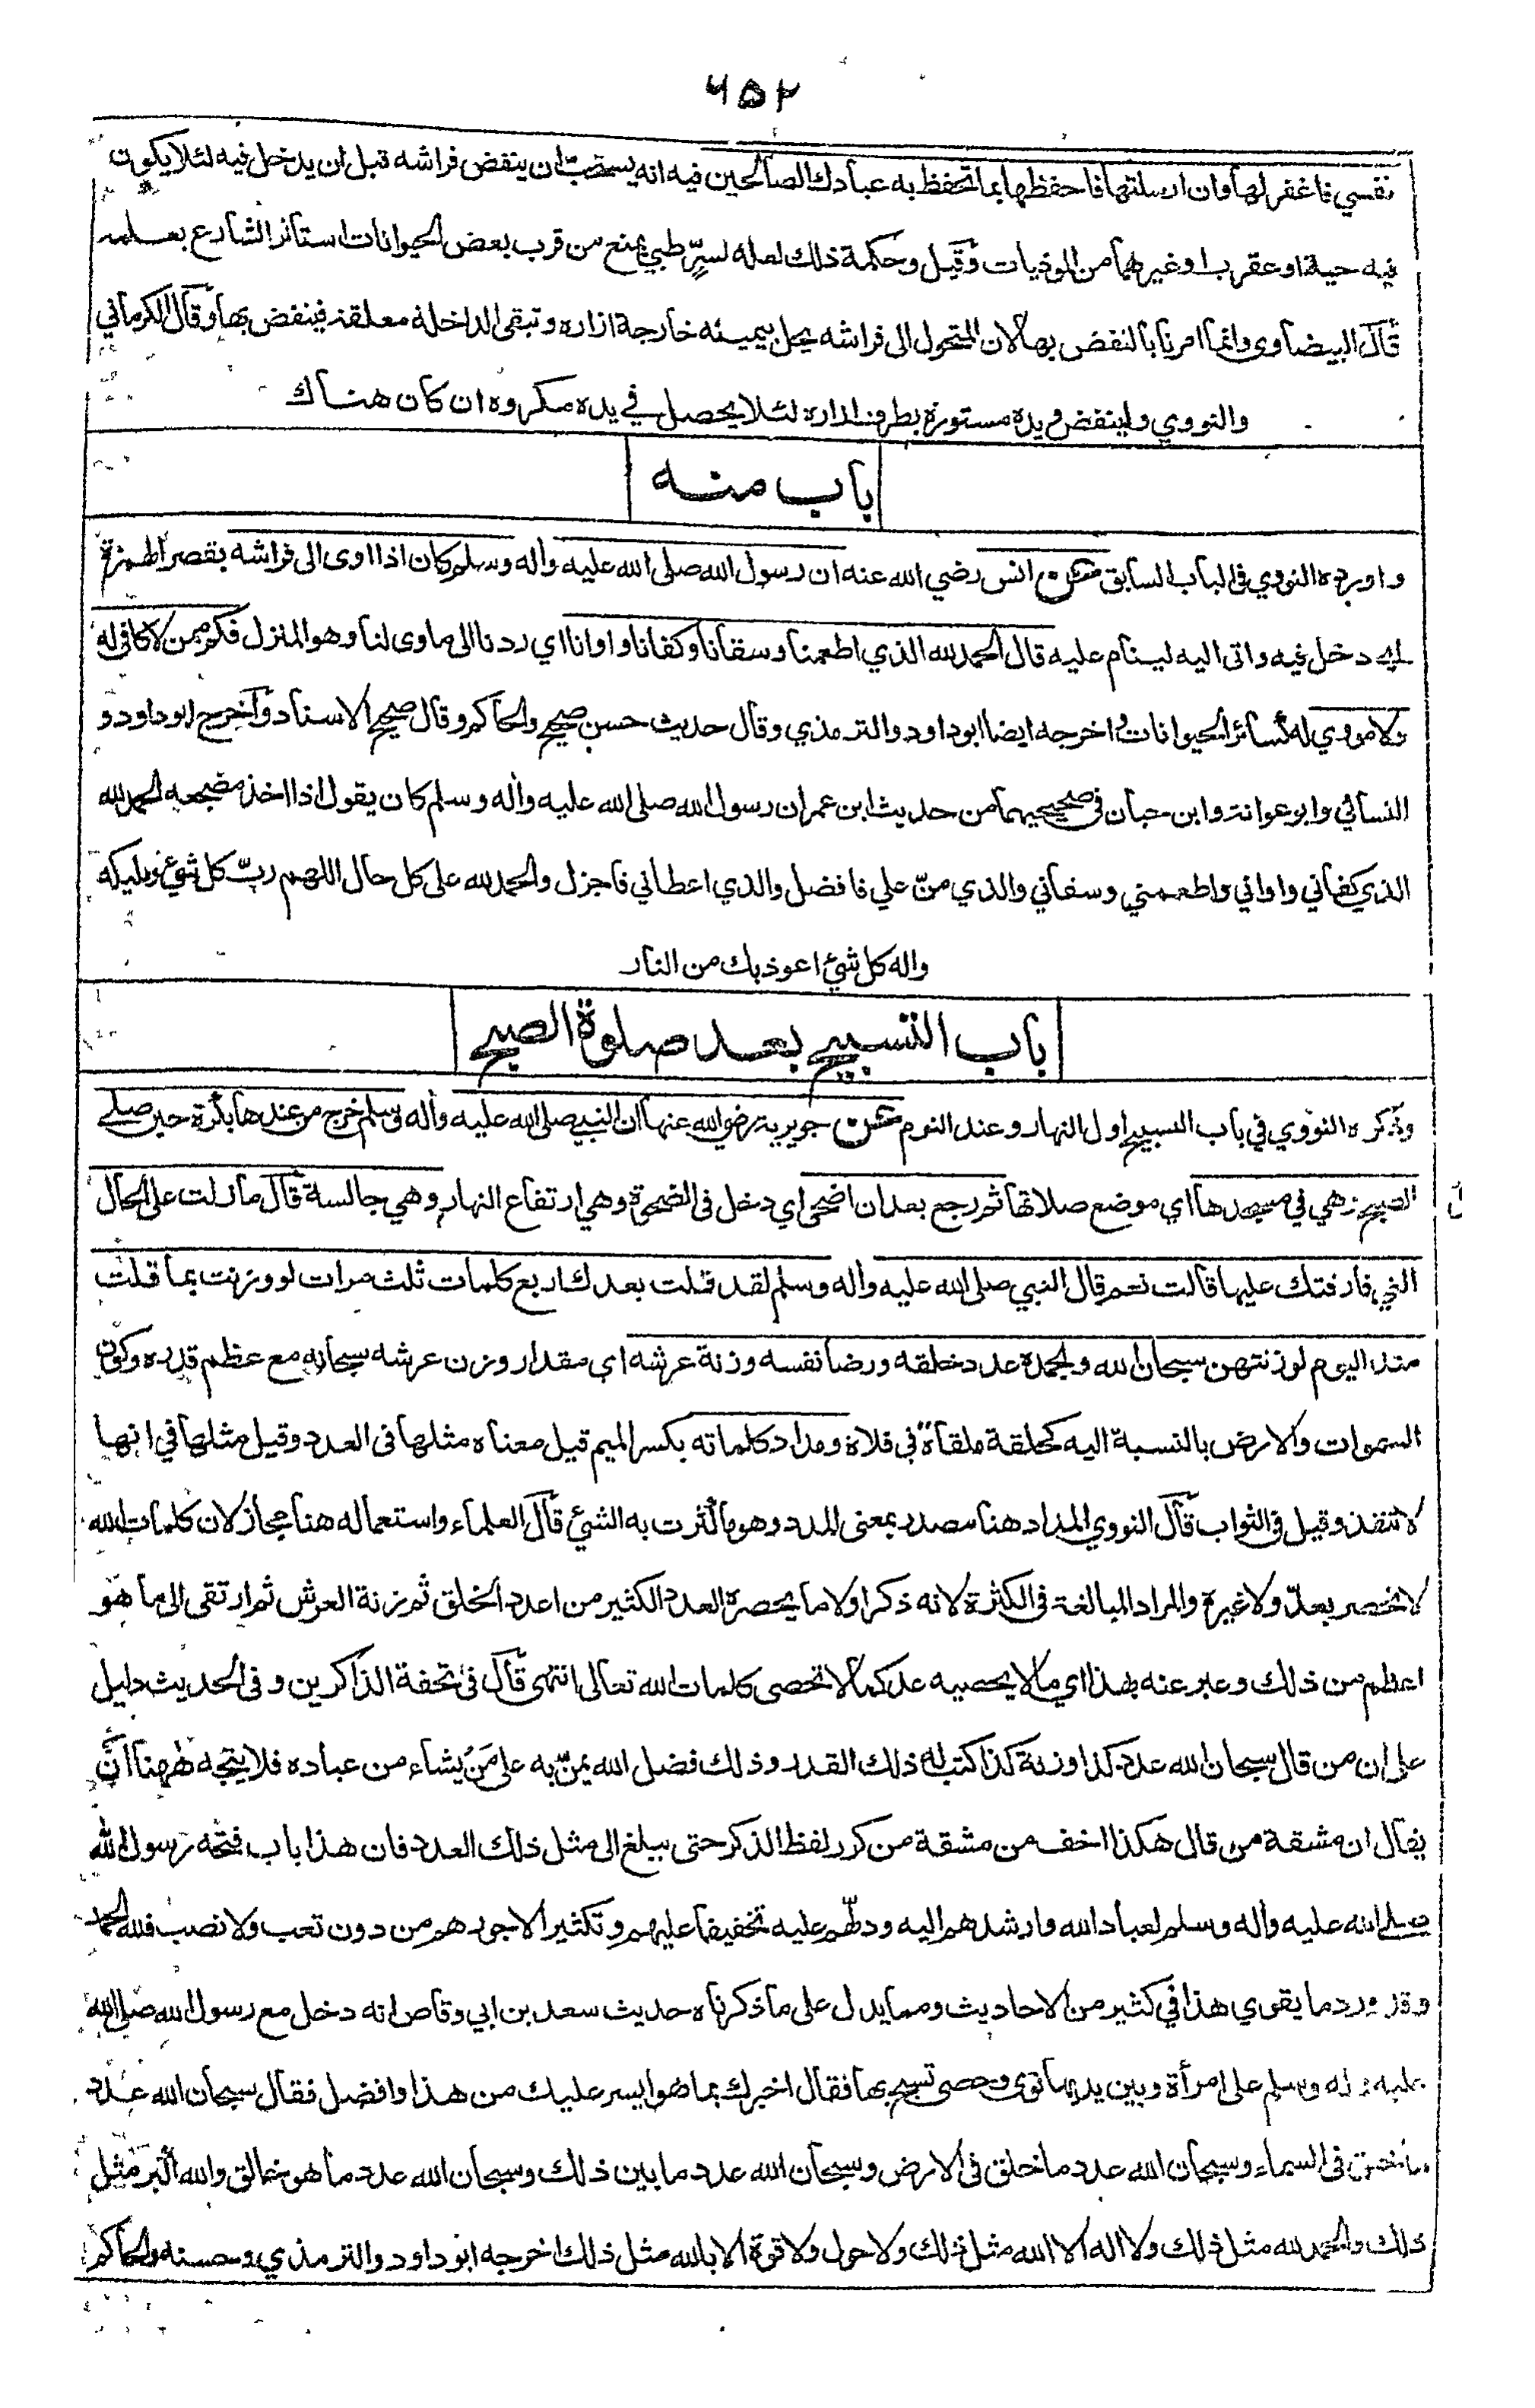 ٦٥٢
نفسي فاغفر لها وان ارسلتها فاحفظها بما تحفظ به عبادك الصالحين فيه انه يستحب ان ينفض فراشه قبل ان يدخل فيه لئلا يكون
فيه حية او عقرب او غيرهما من الموذيات وقيل وحكمة ذلك لعله لسرّ طبي يمنع من قرب بعض الحيوانات استاثر الشارع بعلمه
قال البيضاوي وانما امرنا بالنفض بها لان المتحول الى فراشه يحل بيمينه خارجة ازاره وتبقى الداخلة معلقة فينفض بها وقال الكرماني
والنووي ولينفض ويده مستورة بطرف ازاره لئلا يحصل في يده مكروه ان كان هناك
باب منه
واورده النووي في الباب السابق عن انس رضي الله عنه ان رسول الله صلى الله عليه واله وسلم كان اذا اوى الى فراشه بقصر الهمزة
اي دخل فيه واتى اليه لينام عليه قال الحمد لله الذي اطعمنا وسقانا وكفانا واوانا اي ردنا الى ماوى لنا وهو المنزل فكم ممن لا كافي له
ولا مووي له كسائر الحيوانات واخرجه ايضا ابوداود والترمذي وقال حديث حسن صحيح والحاكم وقال صحيح الاسناد واخرج ابوداود و
النسائي وابوعوانة وابن حبان في صحيحيهما من حديث ابن عمر ان رسول الله صلى الله عليه واله وسلم كان يقول اذا اخذ مضجعه الحمد لله
الذي كفاني واواني واطعمني وسقاني والذي منّ علي فافضل والذي اعطاني فاجزل والحمد لله على كل حال اللهم ربّ كل شيء ومليكه
واله كل شيء اعوذ بك من النار
باب التسبيح بعد صلوة الصبح
وذكره النووي في باب التسبيح اول النهار وعند النوم عن جويرية رضي الله عنها ان النبي صلى الله عليه واله وسلم خرج من عندها بكرة حين صلى
الصبح وهي في مسجدها اي موضع صلاتها ثم رجع بعد ان اضحى اي دخل في الضحوة وهي ارتفاع النهار وهي جالسة قال ما زلت على الحال
التي فارقتك عليها قالت نعم قال النبي صلى الله عليه واله وسلم لقد قلت بعدك اربع كلمات ثلث مرات لو وزنت بما قلت
منذ اليوم لوزنتهن سبحان الله وبحمده عدد خلقه ورضا نفسه وزنة عرشه اي مقدار وزن عرشه سبحانه مع عظم قدره وكون
السموات والارض بالنسبة اليه كحلقة ملقاة في فلاة ومداد كلماته بكسر الميم قيل معناه مثلها في العدد وقيل مثلها في انها
لا تنفذ وقيل في الثواب قال النووي المداد هنا مصدر بمعنى المدد وهو ما كثرت به الشيء قال العلماء واستعماله هنا مجاز لان كلمات الله
لا تحصر بعدّ ولا غيره والمراد المبالغة في الكثرة لانه ذكر اولا ما يحصره العدد الكثير من اعدد الخلق ثم زنة العرش ثم ارتقى الى ما هو
اعظم من ذلك وعبر عنه بهذا اي ما لا يحصيه عد كما لا تحصى كلمات الله تعالى انتهى قال في تحفة الذاكرين وفي الحديث دليل
على ان من قال سبحان الله عدد كذا وزنة كذا كتب له ذلك القدر وذلك فضل الله يمنّ به على مَن يشاء من عباده فلا يتجه ههنا انّ
يقال ان مشقة من قال هكذا اخف من مشقة من كرر لفظ الذكر حتى يبلغ الى مثل ذلك العدد فان هذا باب فتحه رسول الله
صلى الله عليه واله وسلم لعباد الله وارشدهم اليه ودلهم عليه تخفيفا عليهم وتكثيرا لاجورهم من دون تعب ولا نصب فلله الحمد
وقد ورد ما يقوي هذا في كثير من الاحاديث ومما يدل على ما ذكرناه حديث سعد بن ابي وقاص انه دخل مع رسول الله صلى الله
عليه واله وسلم على امرأة وبين يديها نوى وحصى تسبح بها فقال اخبرك بما هو ايسر عليك من هذا وافضل فقال سبحان الله عدد
ما خلق في السماء وسبحان الله عدد ما خلق في الارض وسبحان الله عدد ما بين ذلك وسبحان الله عدد ما هو خالق والله اكبر مثل
ذلك والحمد لله مثل ذلك ولا اله الا الله مثل ذلك ولا حول ولا قوة الا بالله مثل ذلك اخرجه ابوداود والترمذي وحسنه والحاكم